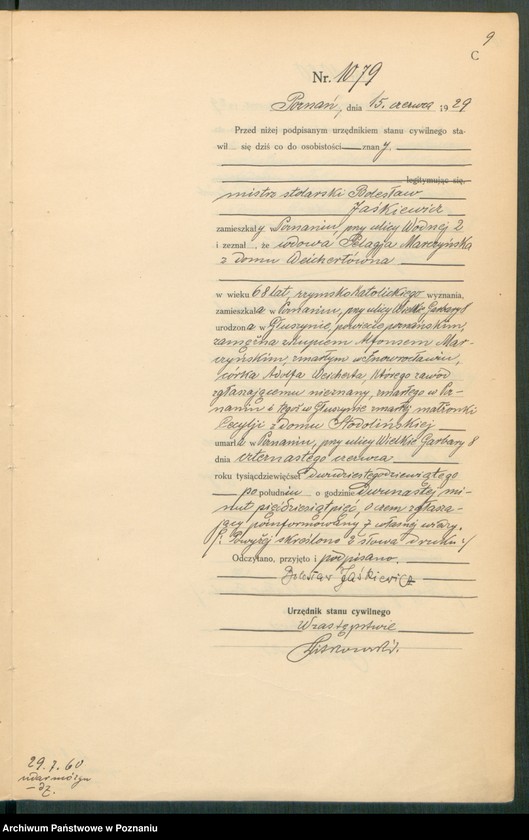 9
C
Nr. 1079
Poznań, dnia 15. czerwca 1929
Przed niżej podpisanym urzędnikiem stanu cywilnego sta-
wił się dziś co do osobistości znany.
legitymując się,
mistrz stolarski Bolesław
Jaśkiewicz
zamieszkały w Poznaniu, przy ulicy Wodnej 2
i zeznał, że wdowa Pelagja Marczyńska
z domu Weichertówna
w wieku 68 lat, rzymsko katolickiego wyznania,
zamieszkała w Poznaniu, przy ulicy Wielkie Garbary 8
urodzona w Głuszynie, powiecie poznańskim,
zamężna z kupcem Alfonsem Mar-
czyńskim, zmarłym w Inowrocławiu,
córka Adolfa Weicherta, którego zawód
zgłaszającemu nieznany, zmarłego w Po-
znaniu i tegoż w Głuszynie zmarłej małżonki
Cecylji z domu Stodolińskiej
umarła w Poznaniu, przy ulicy Wielkie Garbary 8
dnia czternastego czerwca
roku tysiącdziewięćset dwudziestegodziewiątego
po południu o godzinie dwunastej mi-
nut pięćdziesiątpięć, o czem zgłasza-
jący poinformowany z własnej wiedzy.
/: Powyżej skreślono 2 słowa druku :/
Odczytano, przyjęto i podpisano.
Bolesław Jaśkiewicz
Urzędnik stanu cywilnego
W zastępstwie
29. 7. 60
Archiwum Państwowe w Poznaniu